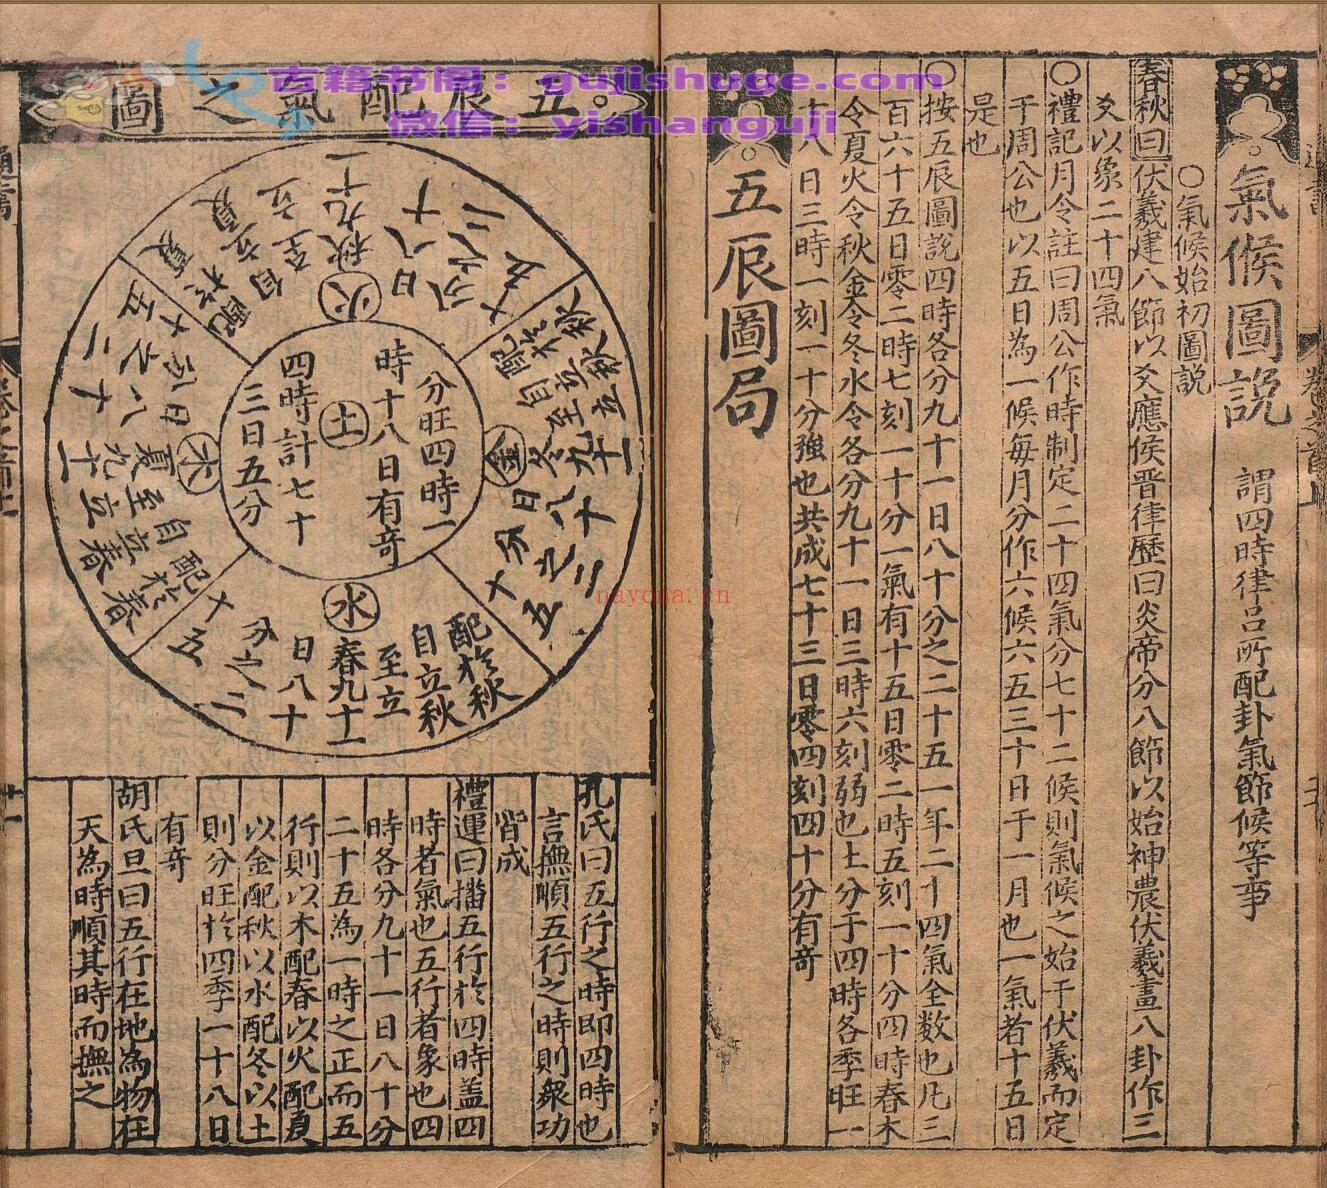 古籍书阁：gujishuge.com
微信：yishanguji
nayona.cn
氣候圖説
謂四時律呂所配卦氣節候等事
○氣候始初圖説
春秋曰伏羲建八節以爻應侯晋律歷曰炎帝分八節以始神農伏羲畫八卦作三
爻以象二十四氣
○禮記月令註曰周公作時制定二十四氣分七十二候則氣候之始于伏羲而定
于周公也以五日為一候每月分作六候六五三十日于一月也一氣者十五日
是也
○按五辰圖説四時各分九十一日八十分之二十五一年二十四氣全数也凡三
百六十五日零二時七刻一十分一氣有十五日零二時五刻一十分四時春木
令夏火令秋金令冬水令各分九十一日三時六刻弱也土分于四時各季旺一
十八日三時一刻一十分強也共成七十三日零四刻四十分有竒
五辰圖局
五辰配氣之圖
火
配於夏
自立夏
至立
秋九十一
日八十
分之二
十五
金
配於秋
自立秋
至立
冬九十一
日八十
分之二
十五
水
配於秋
自立秋
至立
春九十一
日八十
分之二
十五
木
配於春
自立春
至立
夏九十一
日八十
分之二
十五
土
分旺四時一
時十八日有竒
四時計七十
三日五分
孔氏曰五行之時即四時也
言撫順五行之時則衆功
皆成
禮運曰播五行於四時盖四
時者氣也五行者象也四
時各分九十一日八十分
二十五為一時之正而五
行則以木配春以火配夏
以金配秋以水配冬以土
則分旺於四季一十八日
有竒
胡氏旦曰五行在地為物在
天為時順其時而撫之